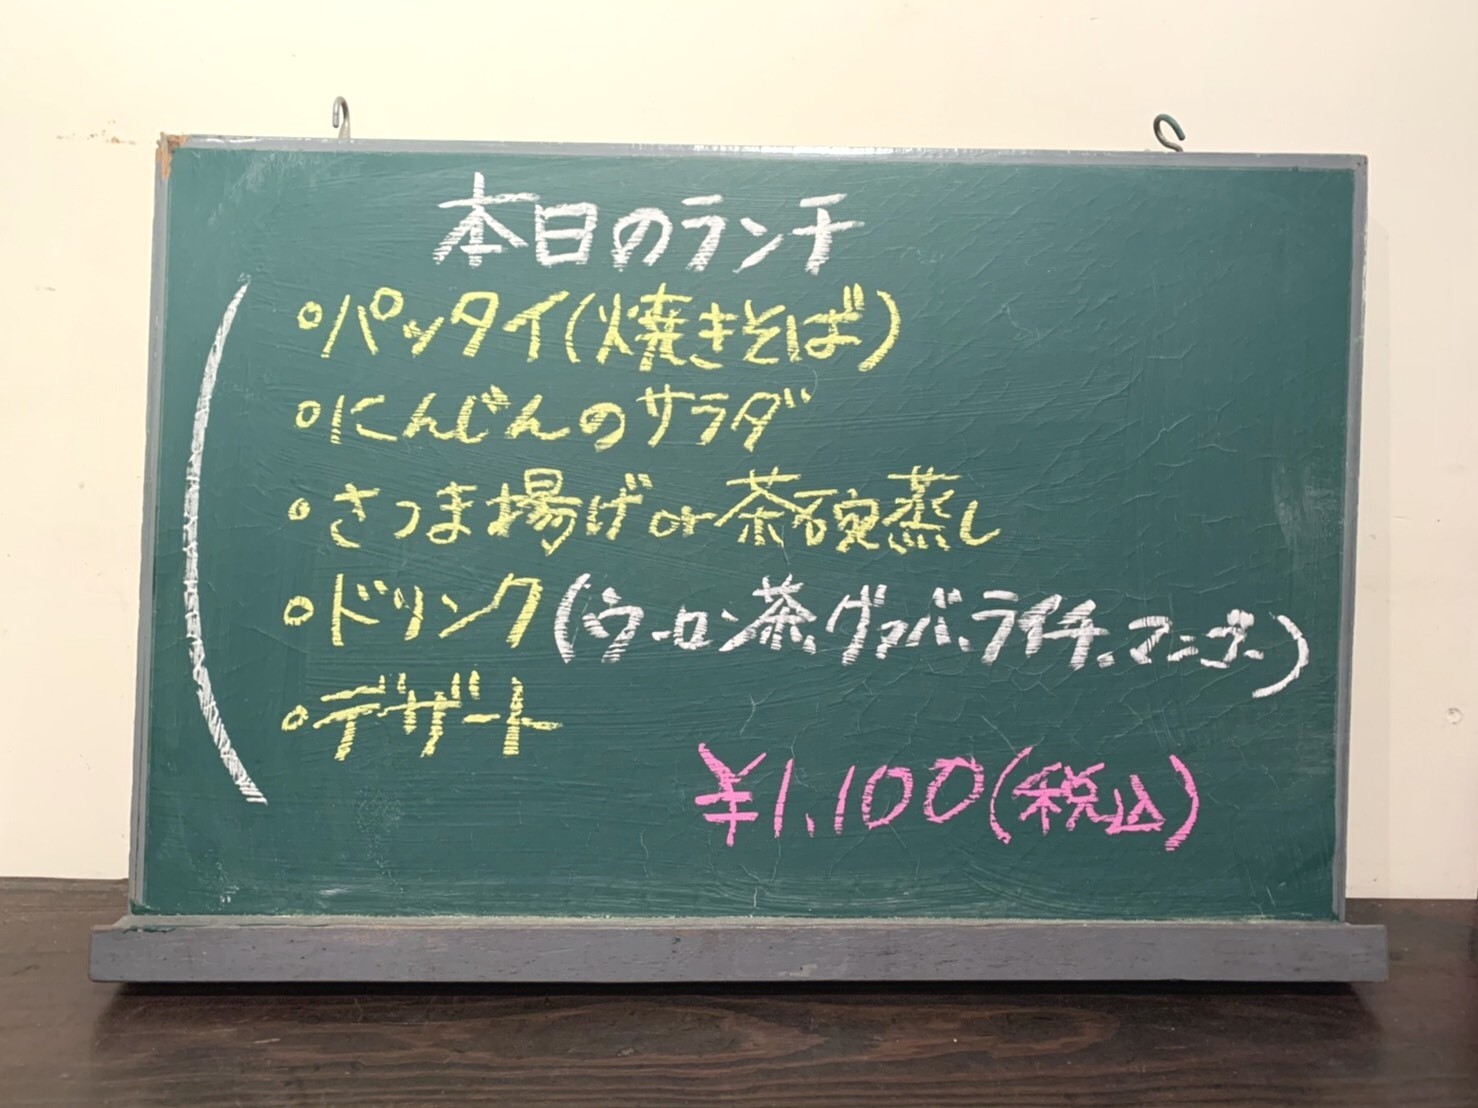 本日のランチ
。パッタイ(焼きそば)
。にんじんのサラダ
。さつま揚げor茶碗蒸し
。ドリンク(ウーロン茶、グァバ、ライチ、マンゴー)
。デザート
¥1.100(税込)